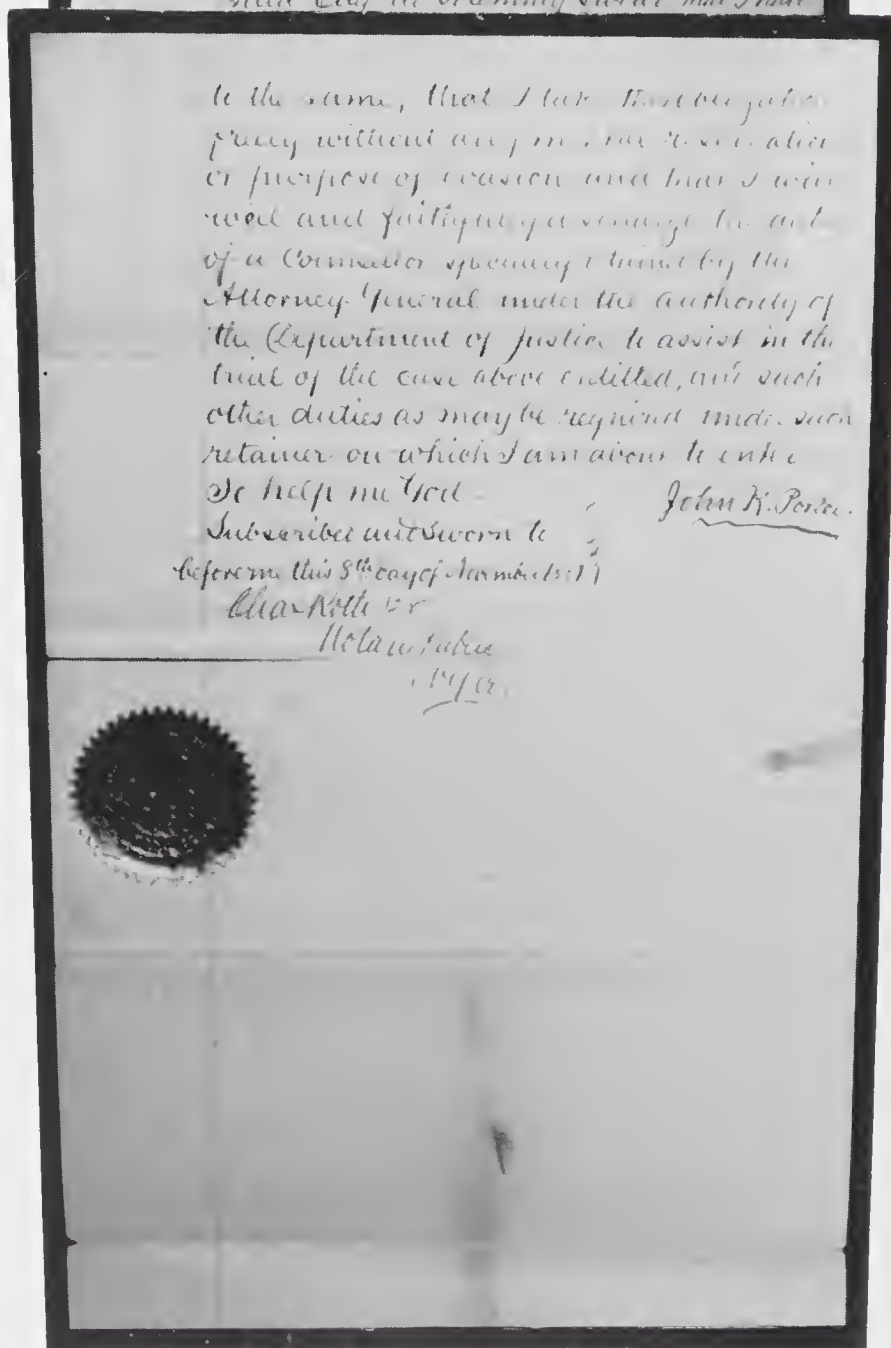 said City do solemnly swear that I
to the same, that I take this obligation
freely without any mental reservation
or purpose of evasion and that I will
well and faithfully discharge the
of a Counsellor specially retained by the
Attorney General under the authority of
the Department of Justice to assist in the
trial of the case above entitled, and such
other duties as may be required under such
retainer on which I am about to enter
So help me God
John K. Porter.
Subscribed and Sworn to
before me this 8th day of November
Notary Public